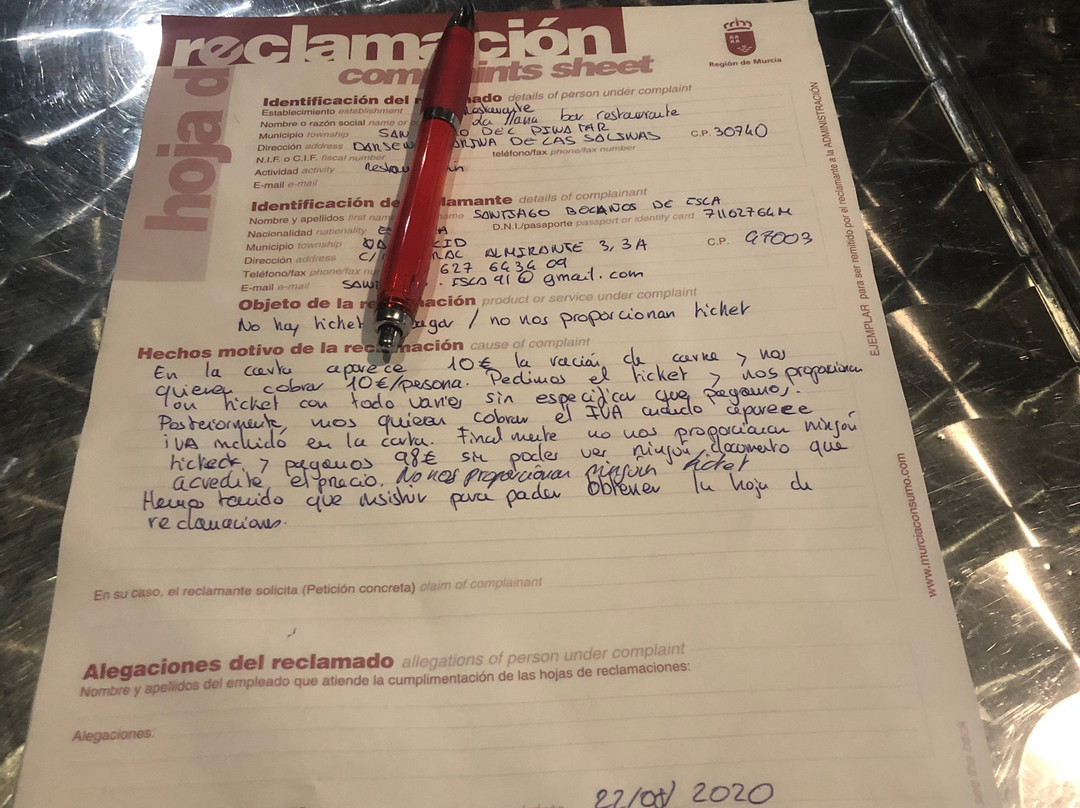 reclamación
complaints sheet
hoja d
Región de Murcia
Identificación del mado details of person under complaint
Establecimiento establishment
Nombre o razón social name or da Nana bar restaurante
Municipio township SAN DEL PINATAR
Dirección address DARSEN MARINA DE LAS SALINAS C.P. 30740
N.I.F. o C.I.F. fiscal number teléfono/fax phone/fax number
Actividad activity
E-mail e-mail
Identificación de lamante details of complainant
Nombre y apellidos first name name SANTIAGO DE ESCA
Nacionalidad nationality D.N.I./pasaporte passport or identity card 71162764M
Municipio township
Dirección address C/ RAC ALMIRANTE 3, 3A C.P. 47003
Teléfono/fax phone/fax nu 627 643409
E-mail e-mail . ESCA 91@gmail.com
Objeto de la re mación product or service under complaint
No hay ticket pagar / no nos proporcionan ticket
Hechos motivo de la reclamación cause of complaint
En la carta aparece 10€ la ración de carne y nos
quieren cobrar 10€/persona. Pedimos el ticket y nos proporcionan
un ticket con todo varios sin especificar que pagamos.
Posteriormente, nos quieren cobrar el IVA cuando aparece
IVA incluido en la carta. Finalmente no nos proporcionan ningún
ticket y pagamos 98€ sin poder ver ningún documento que
acredite el precio. No nos proporcionan ningún ticket
Hemos tenido que insistir para poder obtener la hoja de
reclamaciones.
En su caso, el reclamante solicita (Petición concreta) claim of complainant
Alegaciones del reclamado allegations of person under complaint
Nombre y apellidos del empleado que atiende la cumplimentación de las hojas de reclamaciones:
Alegaciones:
22/08/2020
EJEMPLAR para ser remitido por el reclamante a la ADMINISTRACIÓN
www.murciaconsumo.com